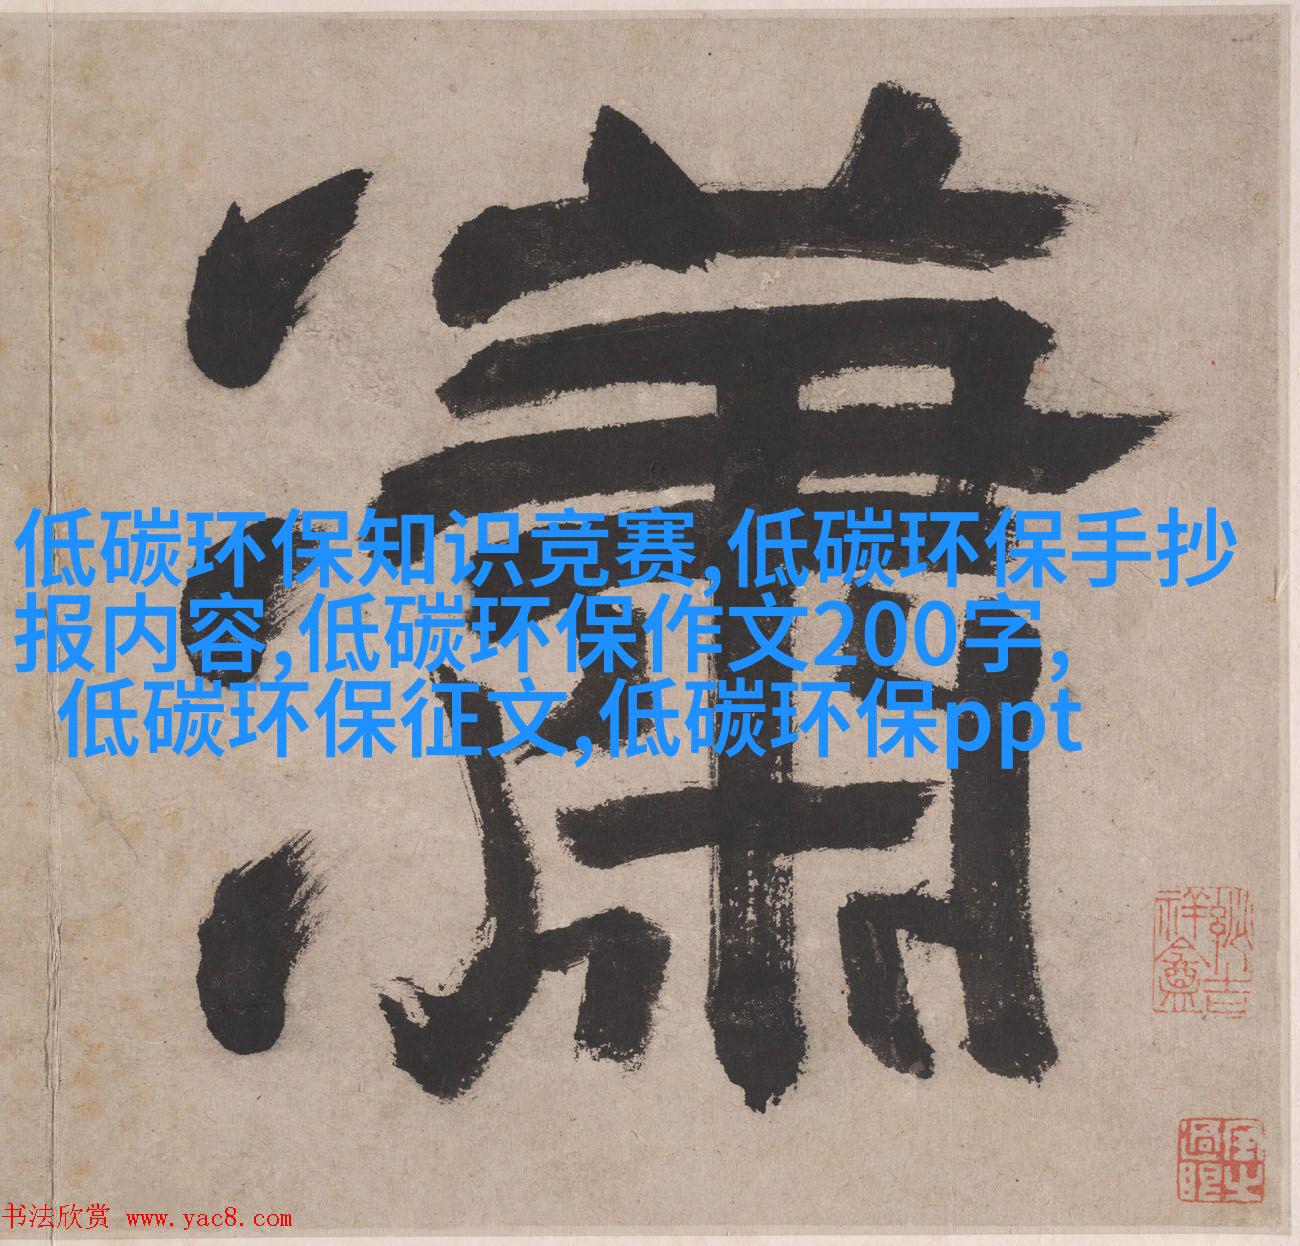 潇
低碳环保知识竞赛,低碳环保手抄
报内容,低碳环保作文200字,
低碳环保征文,低碳环保ppt
书法欣赏 www.yac8.com